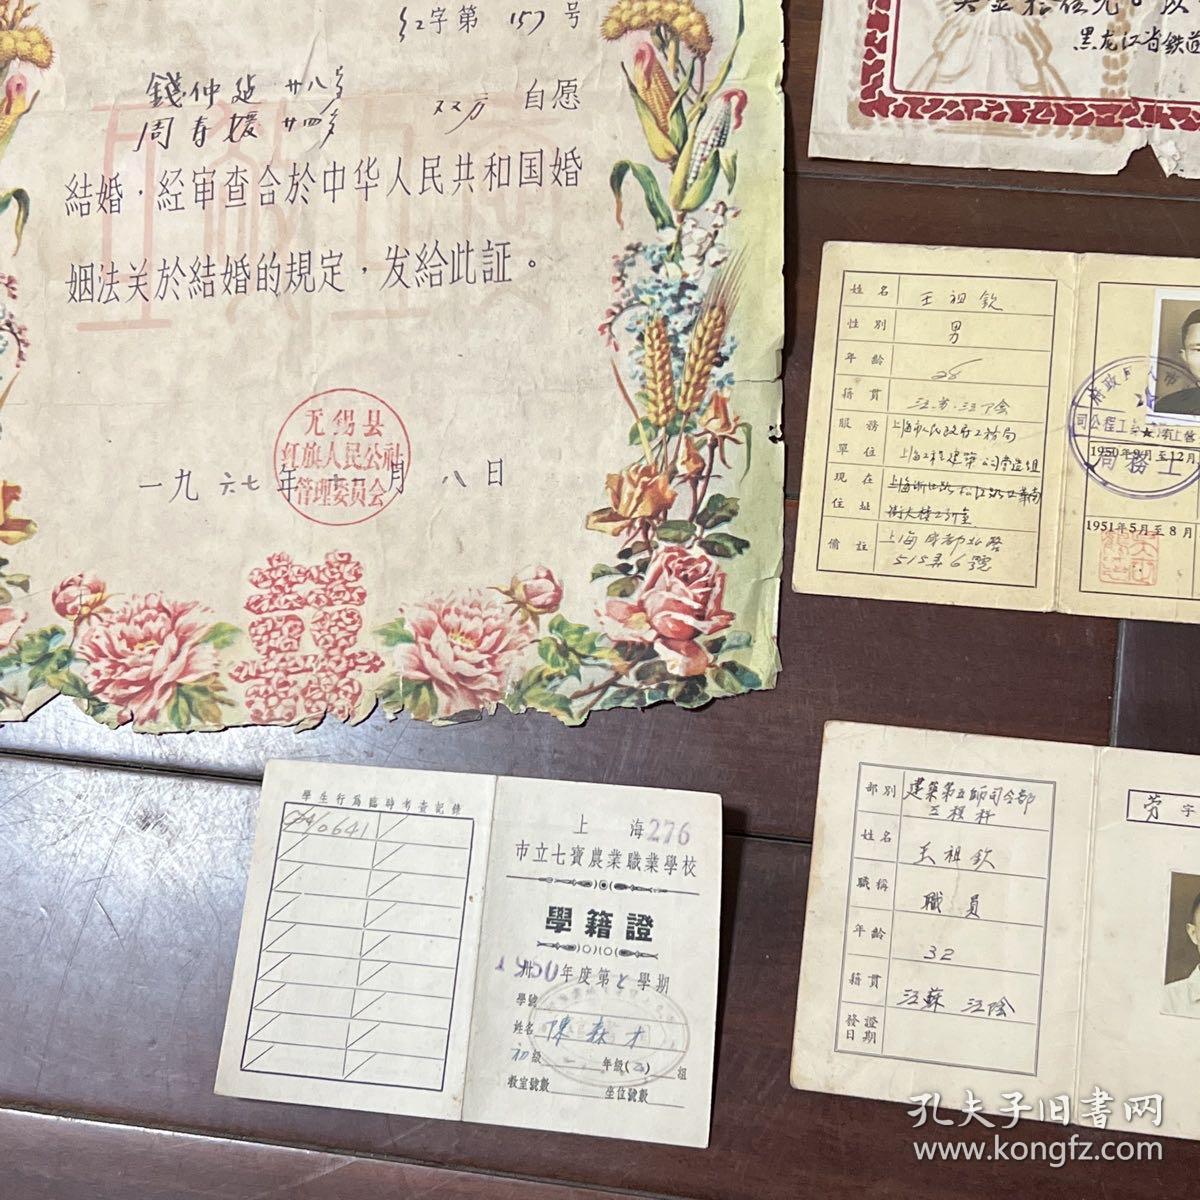 红字第 157 号
錢仲廷 廿八岁
周春媛 廿四岁
双方 自愿
結婚，经审查合於中华人民共和国婚
姻法关於結婚的規定，发給此証。
无锡县
红旗人民公社
管理委员会
一九六七年十一月八日
黑龙江省鉄道
姓名 王祖欽
性别 男
年齡 28
籍貫 江苏江阴
服務單位 上海市人民政府工務局
上海工程建築公司营造组
現在住址
備註 上海成都北路
515弄6號
1950年9月至12月
1951年5月至8月
學生行爲臨時考查記錄
上海 276
市立七寶農業職業學校
學籍證
1950年度第2學期
學號
姓名 陳森才
初級 一 年級(2)組
教室號數 坐位號數
部别 建築第五師司令部
工程科
姓名 王祖欽
職稱 職員
年齡 32
籍貫 江蘇 江陰
發證日期
劳字
孔夫子旧书网
www.kongfz.com